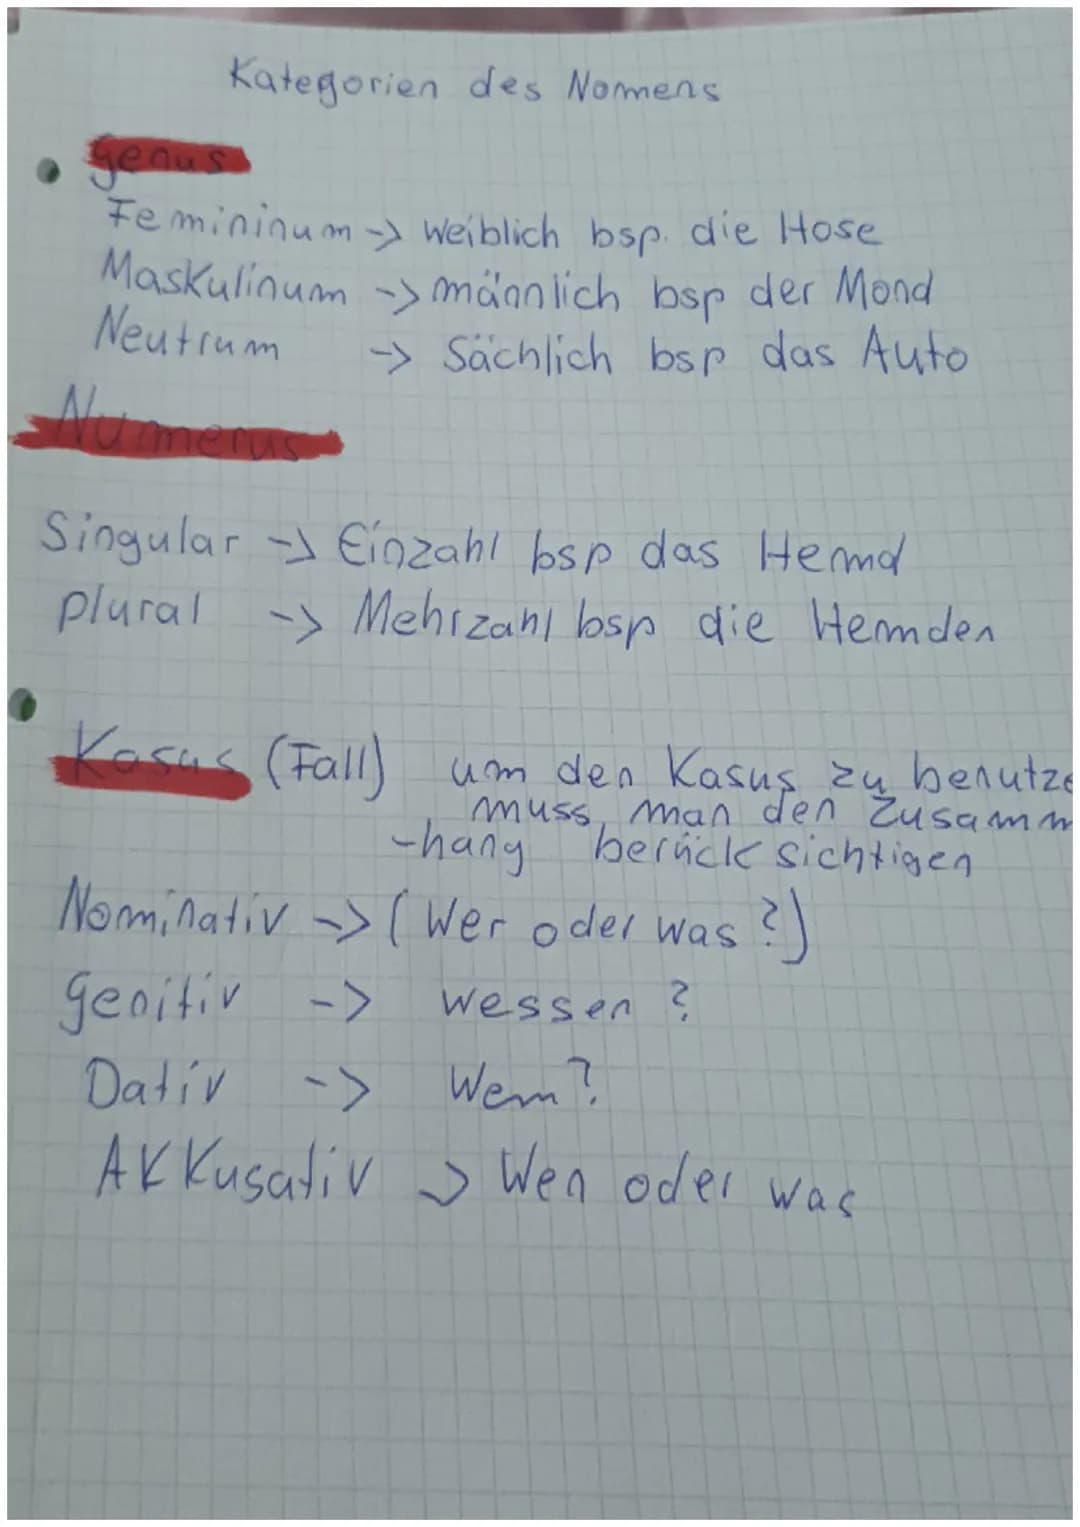 Kategorien des Nomens
Genus
Femininum -> weiblich bsp. die Hose
Maskulinum -> männlich bsp der Mond
Neutrum -> Sächlich bsp das Auto
Numerus
Singular -> Einzahl bsp das Hemd
plural -> Mehrzahl bsp die Hemden
Kasus (Fall) um den Kasus zu benutze
muss man den Zusamm
-hang berücksichtigen
Nominativ -> (Wer oder was?)
genitiv -> wessen?
Dativ -> Wem?
Akkusativ -> Wen oder was